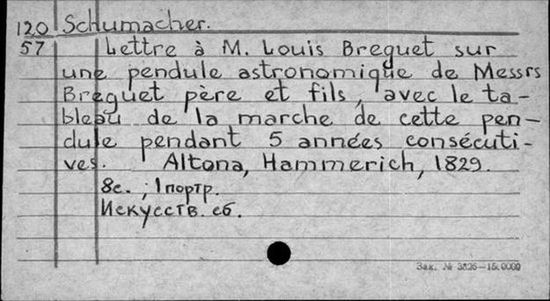 120 Schumacher.
57 Lettre à M. Louis Breguet sur
une pendule astronomique de Messrs
Breguet père et fils, avec le ta-
bleau de la marche de cette pen-
dule pendant 5 années consécuti-
ves. Altona, Hammerich, 1829.
8с. ; 1 портр.
Искусств. сб.
Зак. № 3826—150000